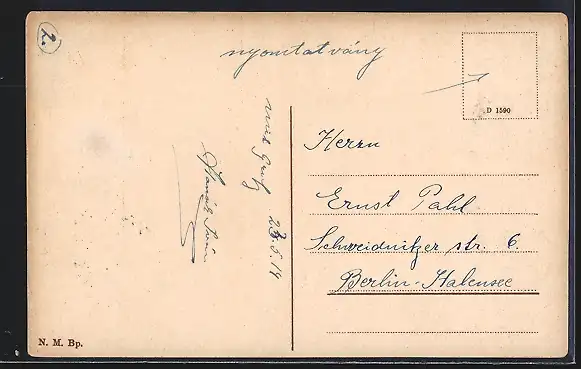 2.
nyomtatvány
D 1590
Herrn
Ernst Pahl
Schweidnitzer str. 6.
Berlin-Halensee
mit Gruß
23.5.14
N. M. Bp.